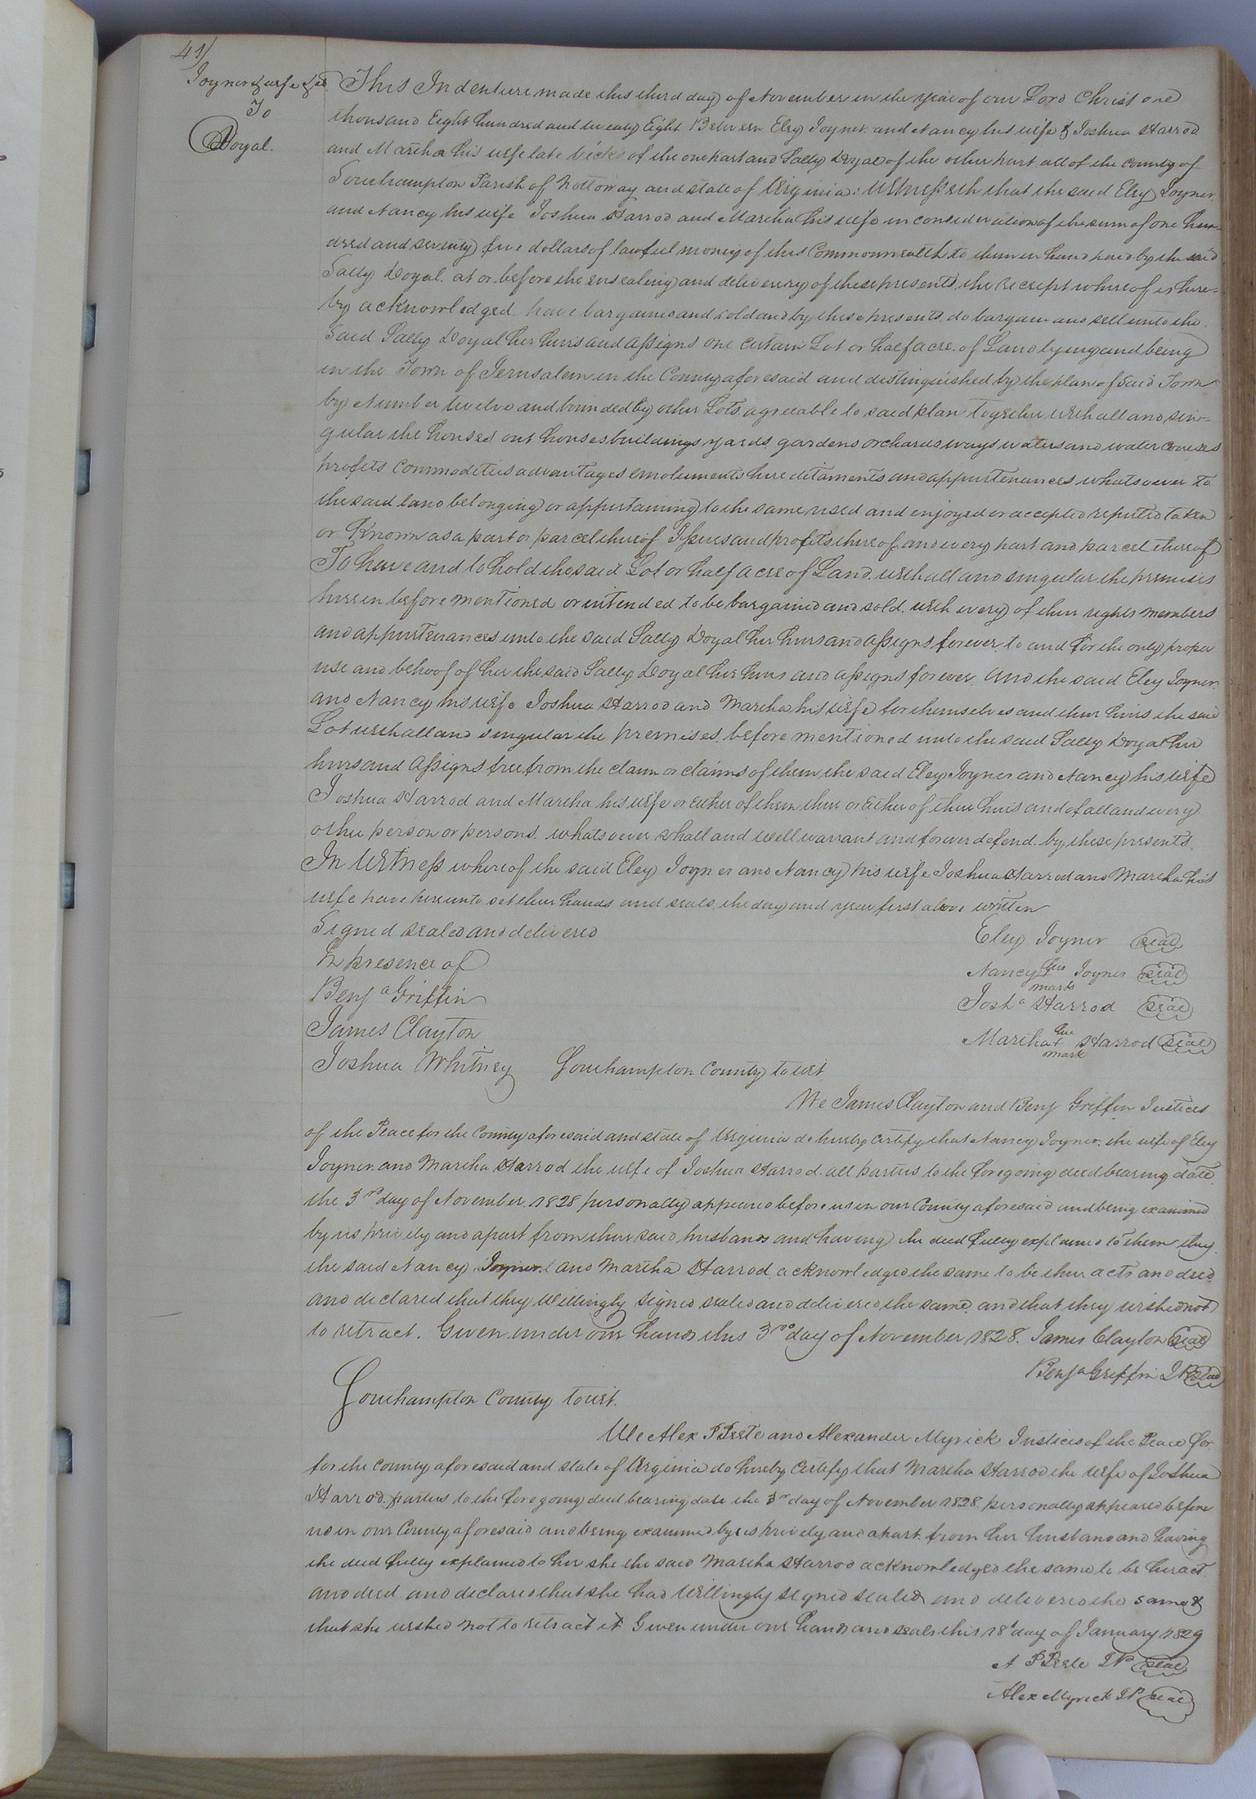 41/
Joyner & wife &c
To
Doyal.
This Indenture made this third day of November in the year of our Lord Christ one
thousand Eight hundred and twenty Eight Between Eley Joyner and Nancy his wife & Joshua Harrod
and Martha his wife late Vick of the one part and Sally Doyal of the other part all of the County of
Southampton Parish of Nottoway and state of Virginia: Witnesseth that the said Eley Joyner
and Nancy his wife Joshua Harrod and Martha his wife in consideration of the sum of one hun-
dred and seventy five dollars of lawful money of this Commonwealth to them in hand paid by the said
Sally Doyal at or before the ensealing and delivery of these presents the receipt whereof is here-
by acknowledged have bargained and sold and by these presents do bargain and sell unto the
Said Sally Doyal her heirs and assigns one certain Lot or half acre of Land lying and being
in the Town of Jerusalem in the County aforesaid and distinguished by the plan of said Town
by Number twelve and bounded by other Lots agreeable to said plan Together with all and sin-
gular the houses out houses buildings yards gardens orchards ways waters and water courses
profits Commodities advantages emoluments hereditaments and appurtenances whatsoever to
the said land belonging or appertaining to the same used and enjoyed or accepted reputed taken
or Known as a part or parcel thereof Issues and profits thereof and every part and parcel thereof
To have and to hold the said Lot or half acre of Land with all and singular the premises
herein before mentioned or intended to be bargained and sold with every of their rights members
and appurtenances unto the said Sally Doyal her heirs and assigns forever to and for the only proper
use and behoof of her the said Sally Doyal her heirs and assigns forever. And the said Eley Joyner
and Nancy his wife Joshua Harrod and Martha his wife for themselves and their heirs the said
Lot with all and singular the premises before mentioned unto the said Sally Doyal her
heirs and Assigns free from the claim or claims of them the said Eley Joyner and Nancy his wife
Joshua Harrod and Martha his wife or Either of them their or Either of their heirs and of all and every
other person or persons whatsoever shall and will warrant and forever defend by these presents.
In Witness whereof the said Eley Joyner and Nancy his wife Joshua Harrod and Martha his
wife have hereunto set their hands and seals the day and year first above written
Signed sealed and delivered
In presence of
Benja Griffin
James Clayton
Joshua Whitney
Eley Joyner seal
Nancy her Joyner seal
mark
Josha Harrod seal
Martha her Harrod seal
mark
Southampton County towit.
We James Clayton and Benj Griffin Justices
of the Peace for the County aforesaid and state of Virginia do hereby certify that Nancy Joyner the wife of Eley
Joyner and Martha Harrod the wife of Joshua Harrod all parties to the foregoing deed bearing date
the 3rd day of November 1828 personally appeared before us in our County aforesaid and being examined
by us privily and apart from their said husbands and having the deed fully explained to them they
the said Nancy Joyner and Martha Harrod acknowledged the same to be their acts and deed
and declared that they Willingly signed sealed and delivered the same and that they wished not
to retract. Given under our hands this 3rd day of November 1828. James Clayton seal
Benja Griffin JP seal
Southampton County towit.
We Alex P Peete and Alexander Myrick Justices of the Peace for
for the County aforesaid and state of Virginia do hereby Certify that Martha Harrod the wife of Joshua
Harrod parties to the foregoing deed bearing date the 3rd day of November 1828 personally appeared before
us in our County aforesaid and being examined by us privily and apart from her husband and having
the deed fully explained to her she the said Martha Harrod acknowledged the same to be her act
and deed and declared that she had Willingly signed sealed and delivered the same &
that she wished not to retract it Given under our hands and seals this 18th day of January 1829
A P Peete JP seal
Alex Myrick JP seal